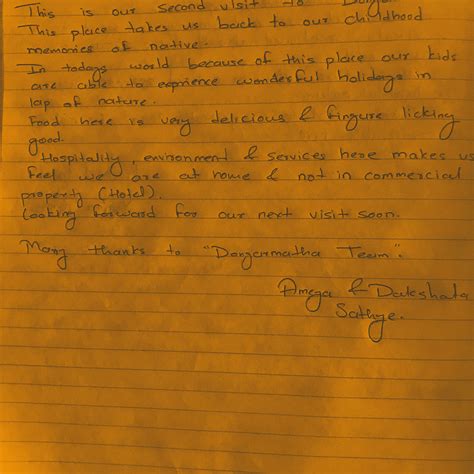 This is our second visit to
This place takes us back to our childhood
memories of native.
In todays world because of this place our kids
are able to exprience wonderful holidays in
lap of nature.
Food here is very delicious & fingure licking
good.
Hospitality, environment & services here makes us
feel we are at home & not in commercial
property (Hotel).
Looking forward for our next visit soon.
Many thanks to "Dongarmatha Team".
Ameya & Dakshata
Sathye.